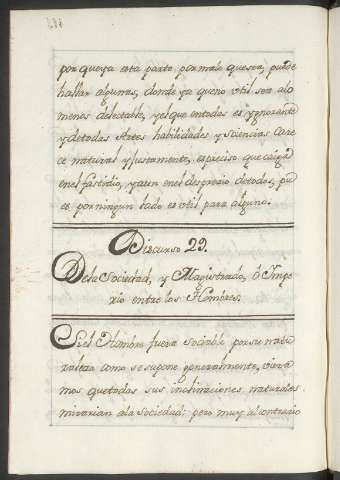 por que ya esta parte, por mala que sea, puede
hallar algunas, donde ya que no vtil sea alo
menos delectable, y el que entodas es ygnorante
y detodas Artes habilidades y Sciencias Care
ce natural y justamente, es preciso que caiga
enel fastidio, y aun enel despreçio detodos, pu
es por ningun lado es vtil para alguno.
Discurso 29.
Dela Sociedad, y Magistrado, ô Impe
rio entre los Hombres.
Siel Hombre fuera Sociable por su natu
raleza como se supone generalmente, viera
mos que todas sus inclinaciones naturales
mirarian ala Sociedad; pero muy al contrario